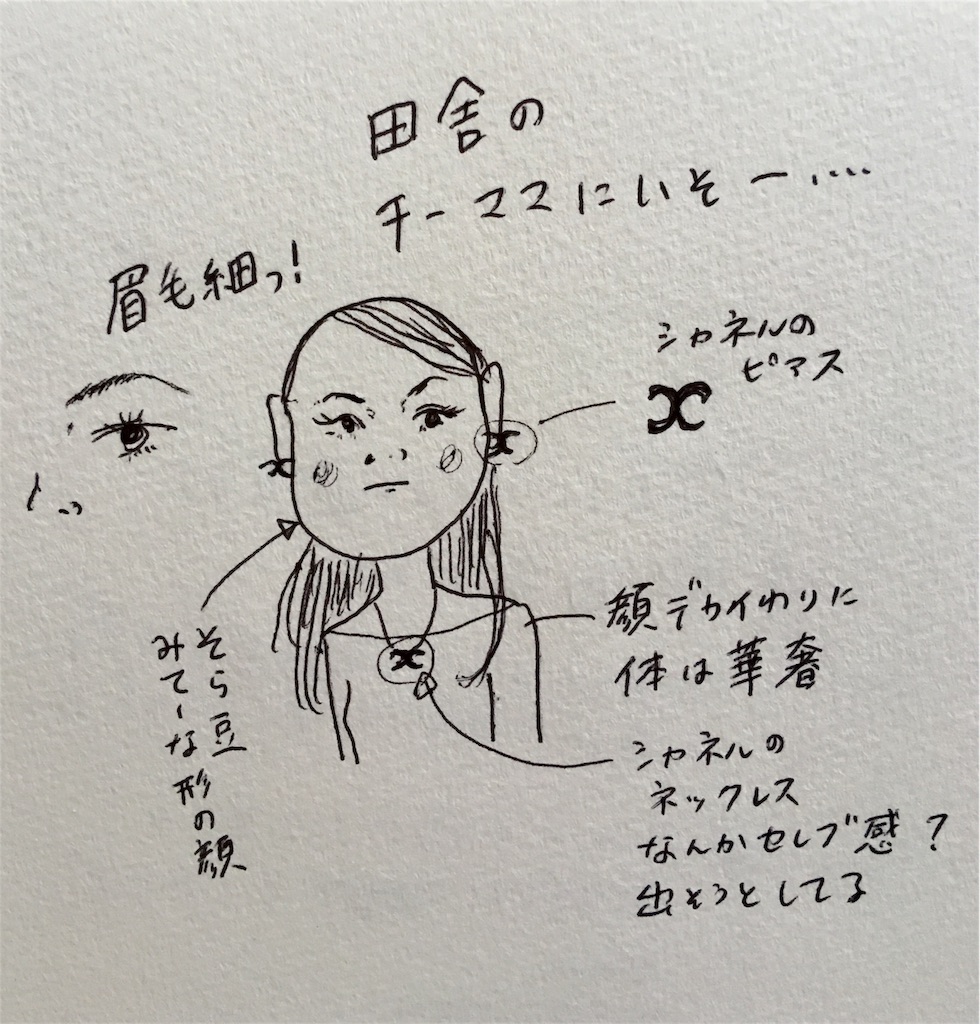 田舎の
チーママにいそー.....
眉毛細っ!
シャネルの
ピアス
顔デカイわりに
体は華奢
そら豆
みてーな形の顔
シャネルの
ネックレス
なんかセレブ感?
出そうとしてる